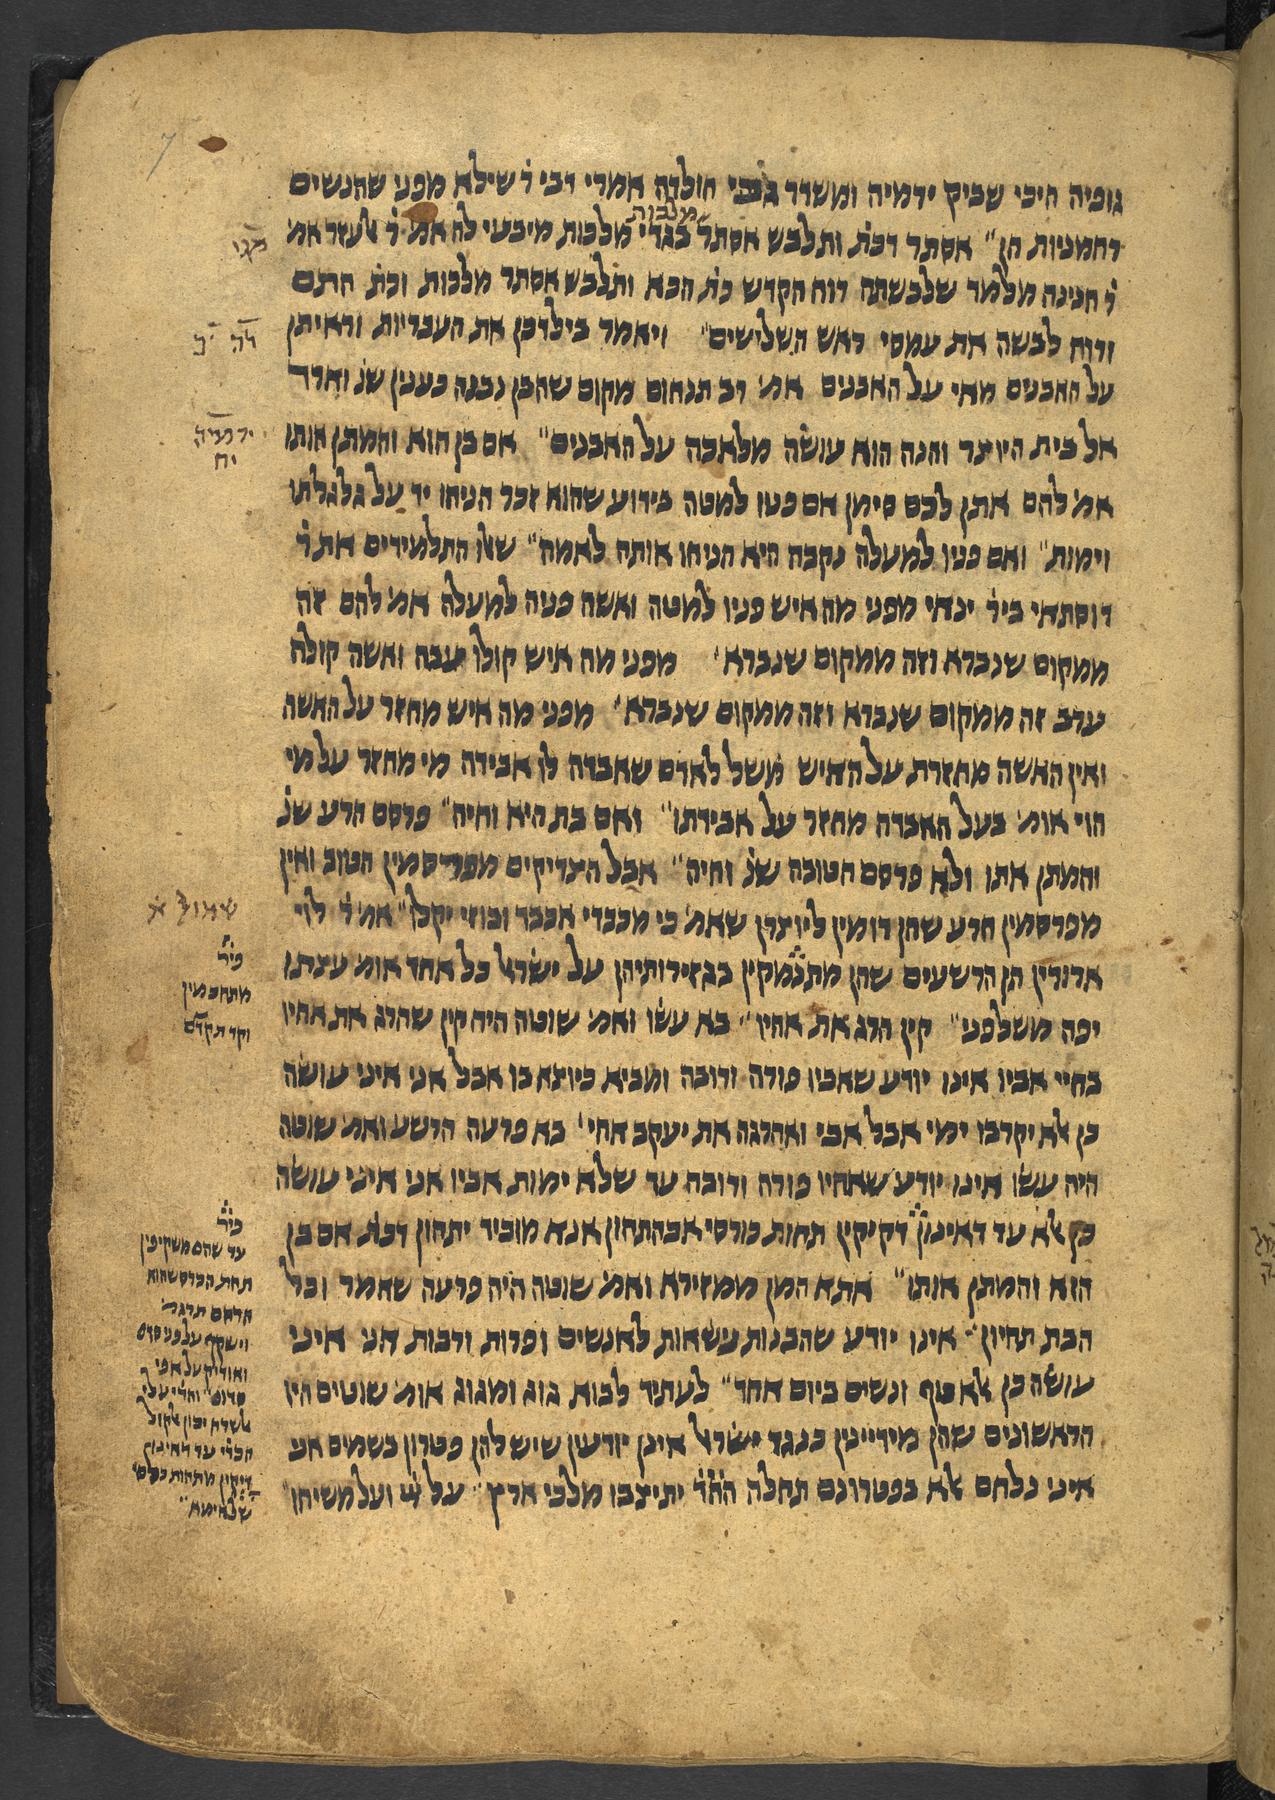 גופיה היכי שביק ירמיה ומשדר גבי חולדה אמרי דבי ר׳ שילא מפני שהנשים
מלכות
רחמניות הן״ אסתר דכת׳ ותלבש אסתר בגדי מלכות מיבעי לה אמ׳ ר׳ אלעזר אמ׳
ר׳ חנינה מלמד שלבשתה רוח הקדש כת׳ הכא ותלבש אסתר מלכות וכת׳ התם
ורוח לבשה את עמסי ראש השלישים״ ויאמר בילדכן את העבריות וראיתן
על האבנים מאי על האבנים אמ׳ רב תנחום מקום שהבן נבנה כענין שנ׳ וארד
אל בית היוצר והנה הוא עושה מלאכה על האבנים״ אם בן הוא והמתן אותו
אמ׳ להם אתן לכם סימן אם פניו למטה בידוע שהוא זכר הניחו יד על גלגלתו
וימות״ ואם פניו למעלה נקבה היא הניחו אותה לאמה״ שאלו התלמידים את ר׳
דוסתאי ביר׳ ינאי מפני מה איש פניו למטה ואשה פניה למעלה אמ׳ להם זה
ממקום שנברא וזה ממקום שנברא׳ מפני מה איש קולו עבה ואשה קולה
ערב זה ממקום שנברא וזה ממקום שנברא׳ מפני מה איש מחזר על האשה
ואין האשה מחזרת על האיש משל לאדם שאבדה לו אבידה מי מחזר על מי
הוי אומ׳ בעל האבדה מחזר על אבידתו״ ואם בת היא וחיה״ פרסם הרע שנ׳
והמתן אתו ולא פרסם הטובה שנ׳ וחיה״ אבל הצדיקים מפרסמין הטוב ואין
מפרסמין הרע שהן דומין ליוצרן שאמ׳ כי מכבדי אכבד ובוזי יקלו״ אמ׳ ר׳ לוי
ארורין הן הרשעים שהן מתעמקין בגזירותיהן על ישראל כל אחד אומ׳ עצתו
יפה משלפני״ קין הרג את אחיו״ בא עשו ואמ׳ שוטה היה קין שהרג את אחיו
בחיי אביו אינו יודע שאביו פורה ורובה ומביא כיוצא בו אבל אני איני עושה
כן אלא יקרבו ימי אבל אבי ואהרגה את יעקב אחי׳ בא פרעה הרשע ואמ׳ שוטה
היה עשו אינו יודע שאחיו פורה ורובה עד שלא ימות אביו אני איני עושה
כן אלא עד דאינון דקיקין תחות כורסי אבהתהון אנא מוביד יתהון דכת׳ אם בן
הוא והמתן אותו״ אתא המן ממזירא ואמ׳ שוטה היה פרעה שאמר וכל
הבת תחיון׃ אינו יודע שהבנות נשאות לאנשים ופרות ורבות אני איני
עושה כן אלא טף ונשים ביום אחד״ לעתיד לבוא גוג ומגוג אומ׳ שוטים היו
הראשונים שהן מידיינין כנגד ישראל אינן יודעין שיש להן פטרון בשמים אני
איני נלחם אלא בפטרונם תחלה יתיצבו מלכי ארץ״ על ועל משיחו״
דה
ירמיה
יח
שמול א
פיר׳
מתחכמין
וקד תקדם
פיר׳
עד שהם משקיפין
תחת